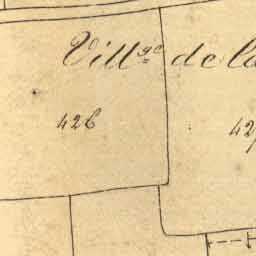 Vill.ge de la
426
42